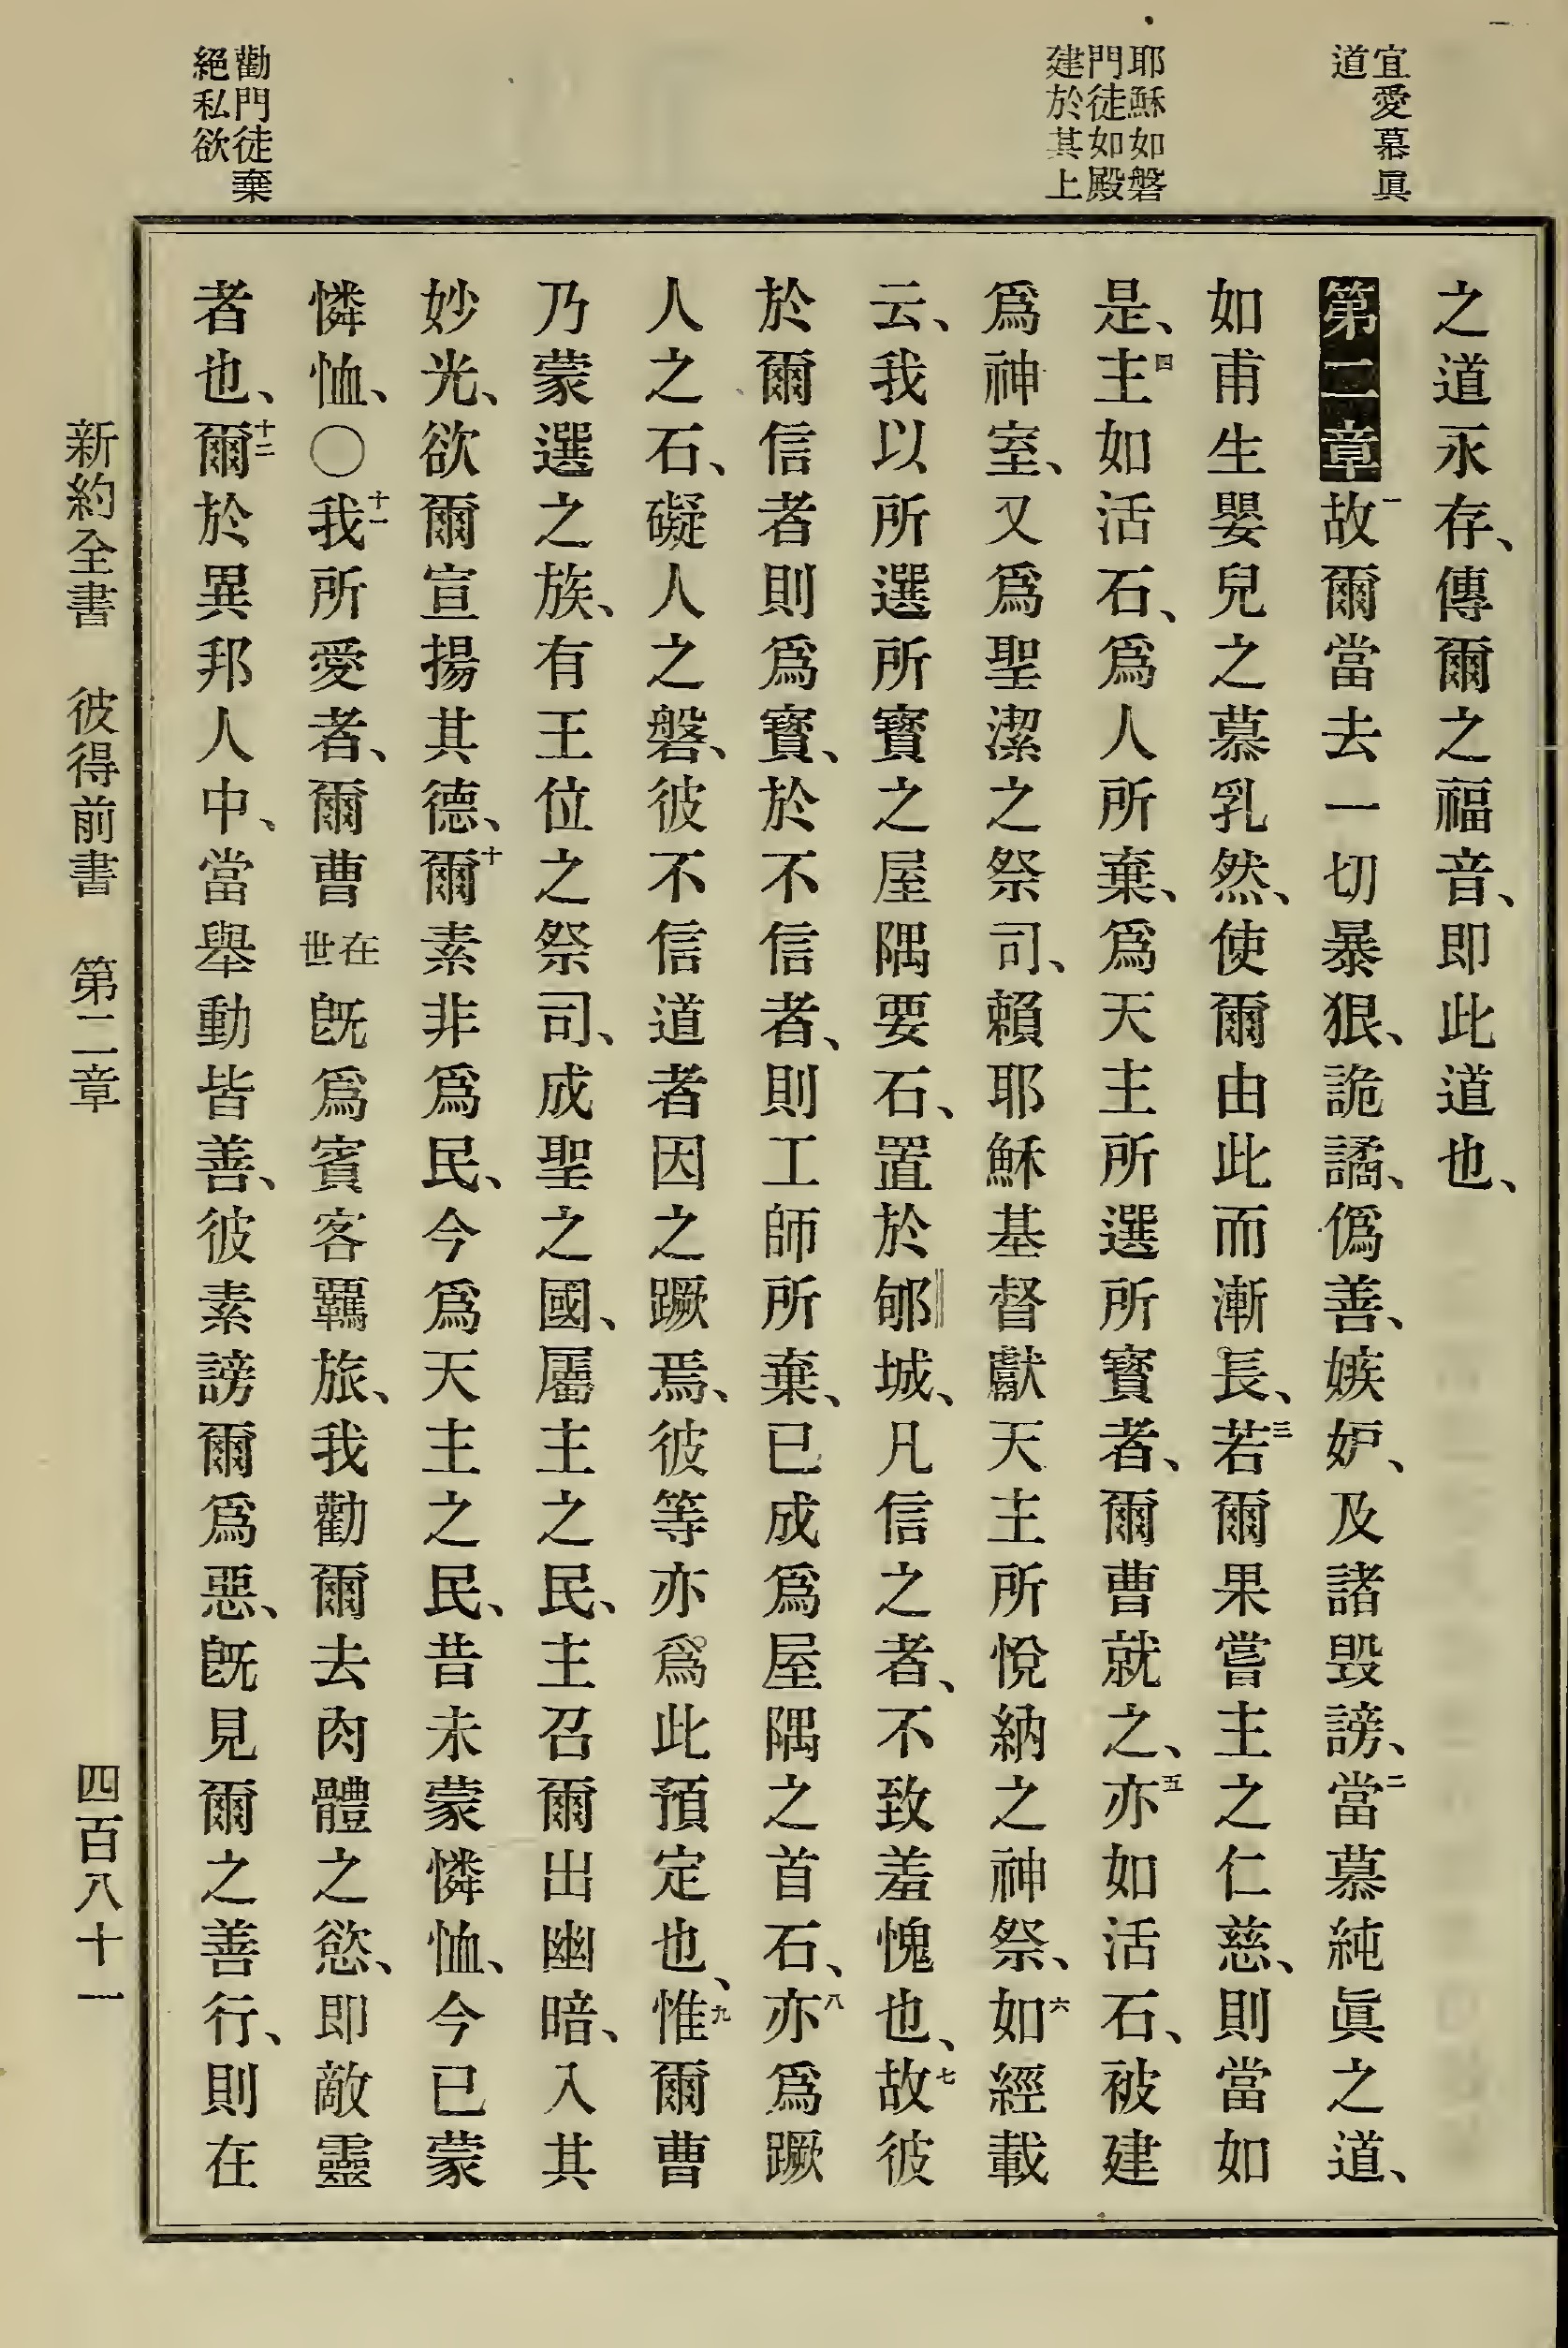 宜愛慕眞
道
耶穌如磐
門徒如殿
建於其上
勸門徒棄
絕私欲
之道永存、傳爾之福音、即此道也、
第二章 一故爾當去一切暴狠、詭譎、僞善、嫉妒、及諸毀謗、二當慕純眞之道、
如甫生嬰兒之慕乳然、使爾由此而漸長、三若爾果嘗主之仁慈、則當如
是、四主如活石、爲人所棄、爲天主所選所寶者、爾曹就之、五亦如活石、被建
爲神室、又爲聖潔之祭司、賴耶穌基督獻天主所悅納之神祭、六如經載
云、我以所選所寶之屋隅要石、置於郇城、凡信之者、不致羞愧也、七故彼
於爾信者則爲寶、於不信者、則工師所棄、已成爲屋隅之首石、八亦爲蹶
人之石、礙人之磐、彼不信道者因之蹶焉、彼等亦爲此預定也、九惟爾曹
乃蒙選之族、有王位之祭司、成聖之國、屬主之民、主召爾出幽暗、入其
妙光、欲爾宣揚其德、十爾素非爲民、今爲天主之民、昔未蒙憐恤、今已蒙
憐恤、〇十一我所愛者、爾曹在世旣爲賓客羈旅、我勸爾去肉體之慾、即敵靈
者也、十二爾於異邦人中、當舉動皆善、彼素謗爾爲惡、旣見爾之善行、則在
新約全書 彼得前書 第二章 四百八十一